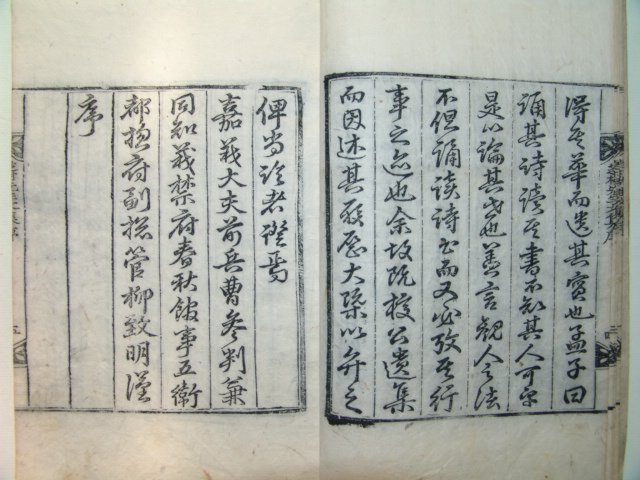 得其華而遺其實也孟子曰
誦其詩讀其書不知其人可乎
是以論其世也善言觀人之法
不但誦讀詩書而又必攷其行
事之迹也余故旣校公遺集
而因述其履歷大槩以弁之
俾尙論者證焉
嘉義大夫前兵曹參判兼
同知義禁府春秋館事五衛
都摠府副摠管柳致明謹
序